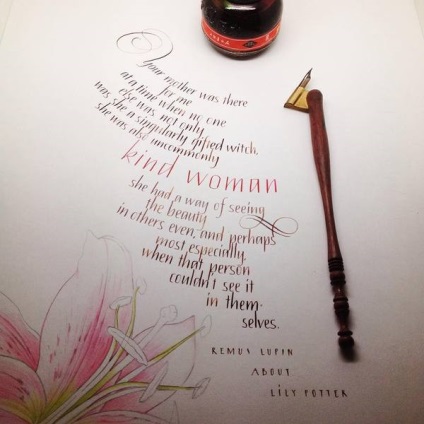 Your mother was there
for me
at a time when no one
else was. not only
was she a singularly gifted witch,
she was also uncommonly
kind woman
she had a way of seeing
the beauty
in others even, and perhaps
most especially,
when that person
couldn't see it
in them-
selves.
REMUS LUPIN
ABOUT
LILY POTTER